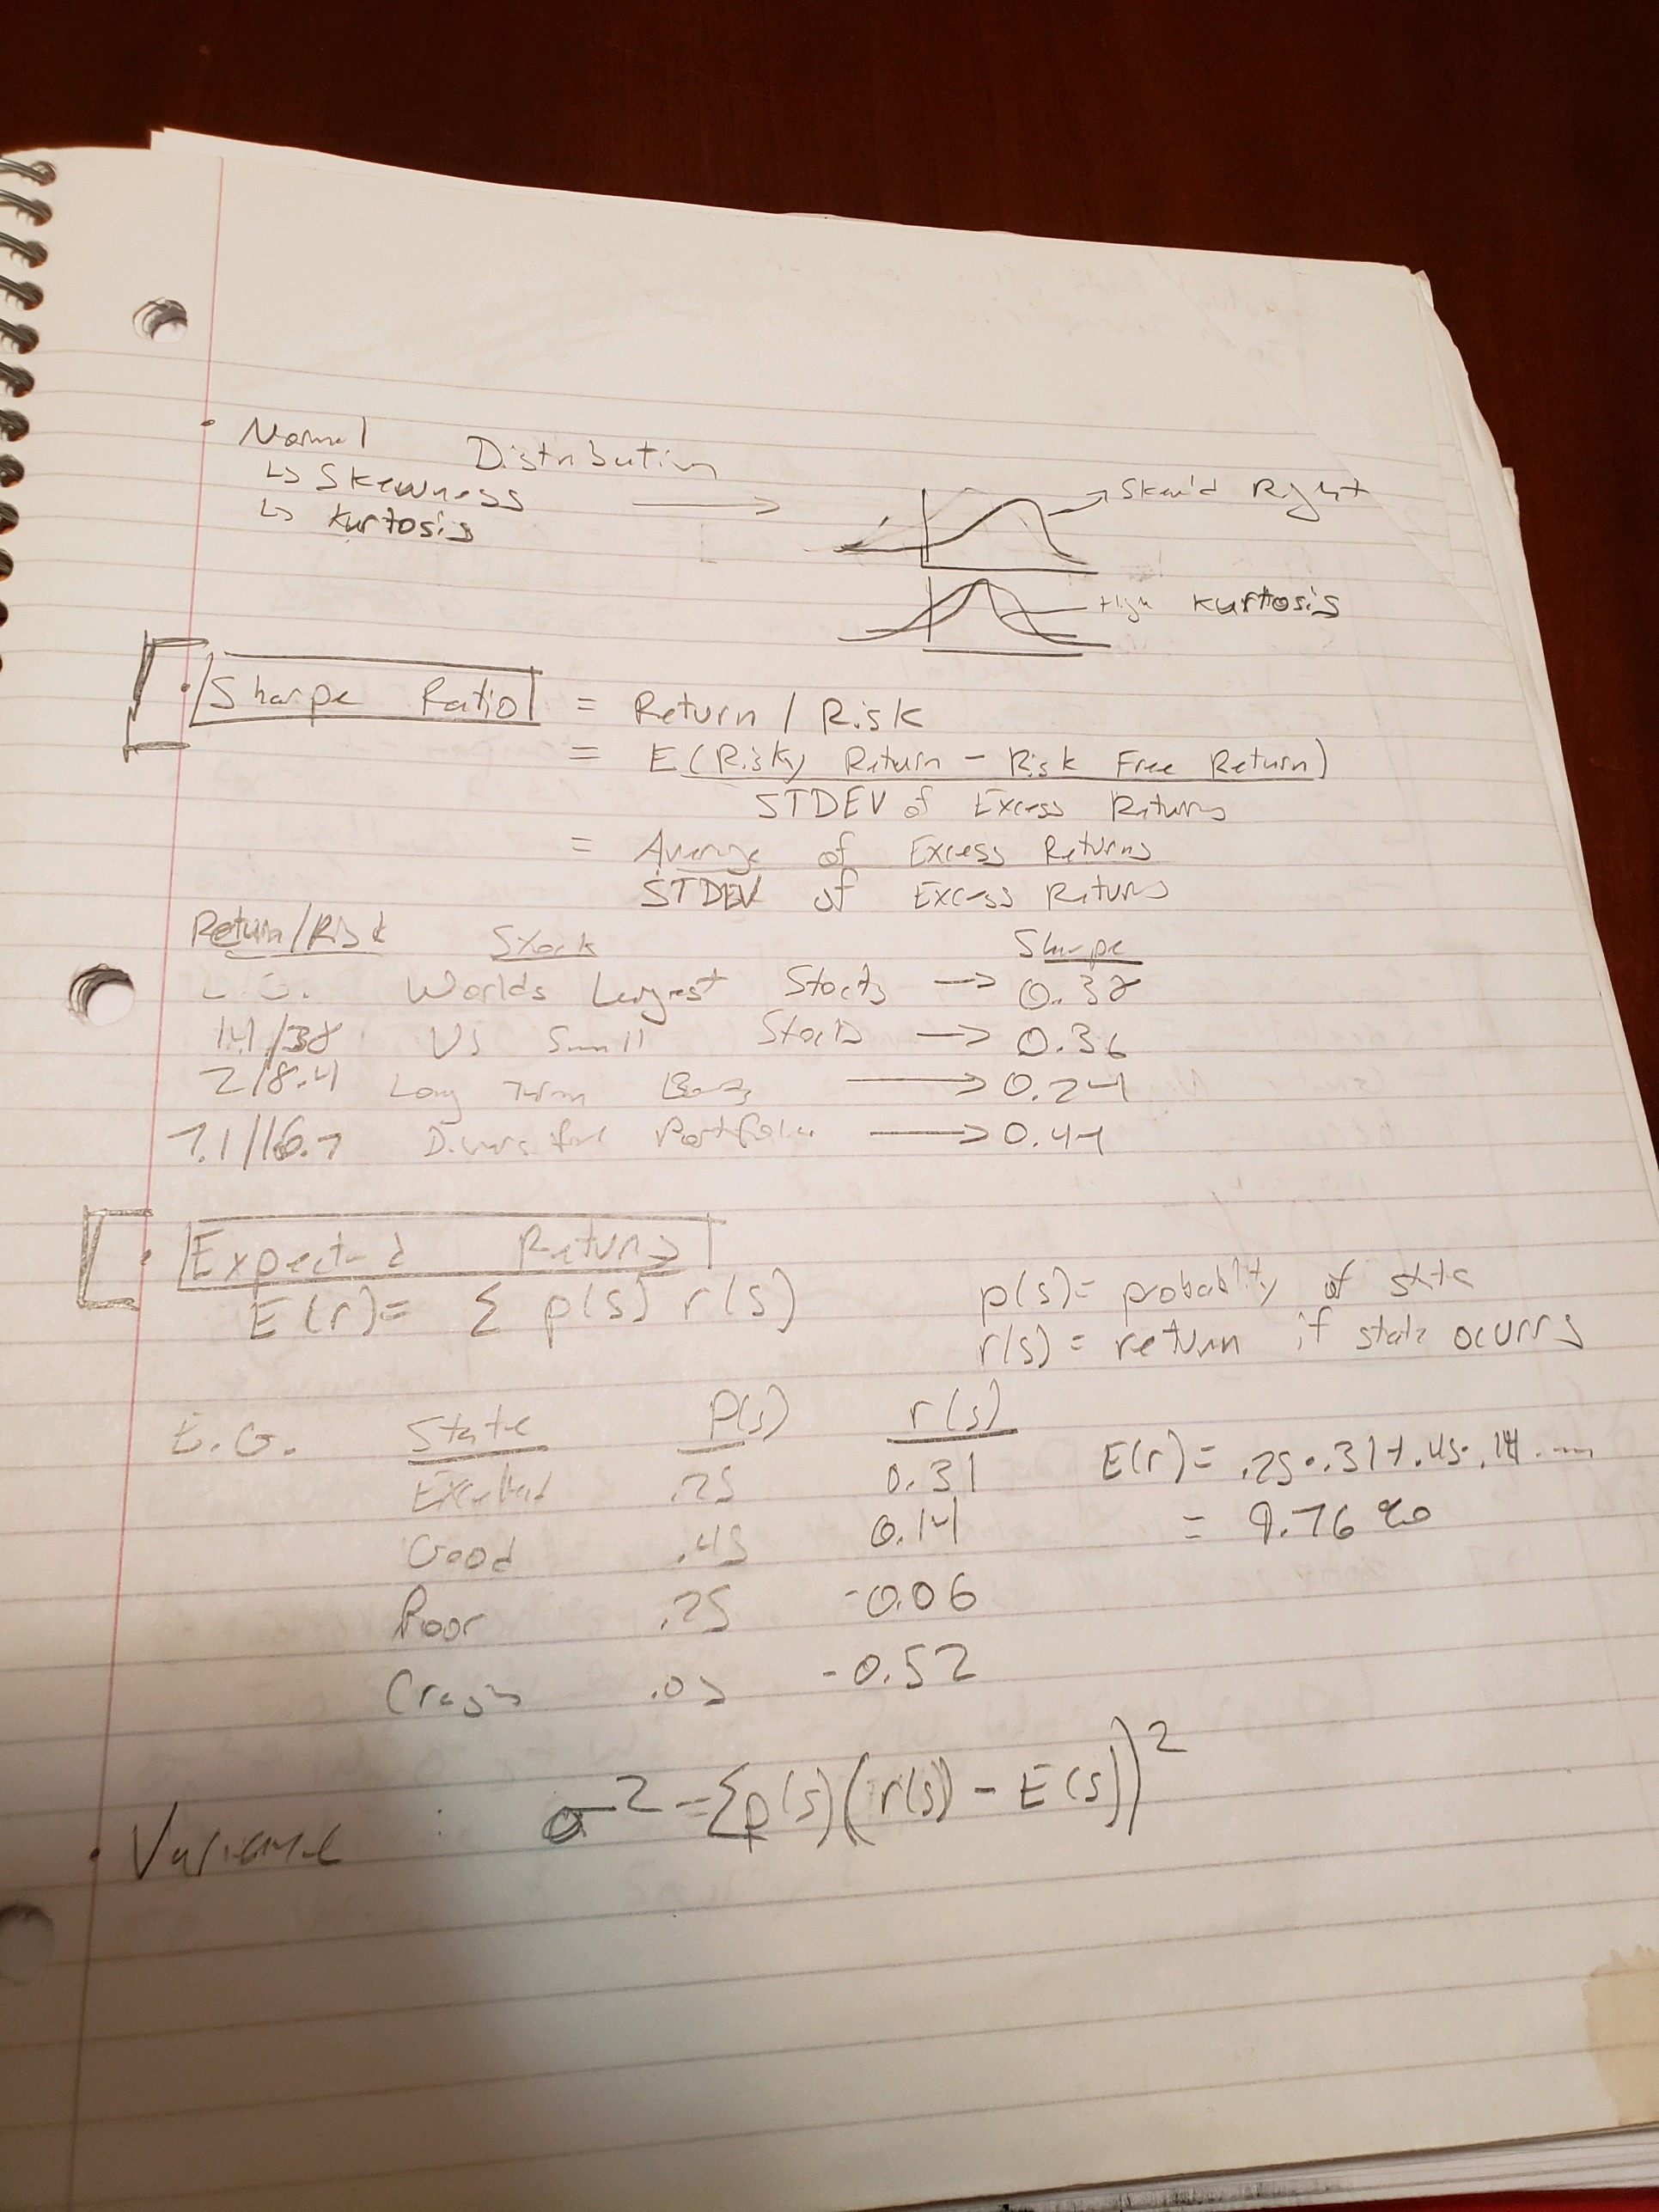 • Normal Distribution
↳ Skewness
↳ Kurtosis
→ Skew'd Right
High Kurtosis
• Sharpe Ratio = Return / Risk
= E(Risky Return - Risk Free Return)
STDEV of Excess Returns
= Average of Excess Returns
STDEV of Excess Returns
Return/Risk Stock Sharpe
Worlds Largest Stocks → 0.38
14/38 US Small Stocks → 0.36
2/8.4 Long Term Bonds → 0.24
7.1/16.7 Portfolio → 0.44
• Expected Returns
E(r) = Σ p(s) r(s)
p(s) = probablity of state
r(s) = return if state ocurrs
E.G. State P(s) r(s)
.25 0.31 E(r) = .25 • .31 + .45 • .14 ....
Good .45 0.14 = 9.76 %
Poor .25 -0.06
Crash .05 -0.52
• Variance : σ² = Σp(s)(r(s) - E(s))²